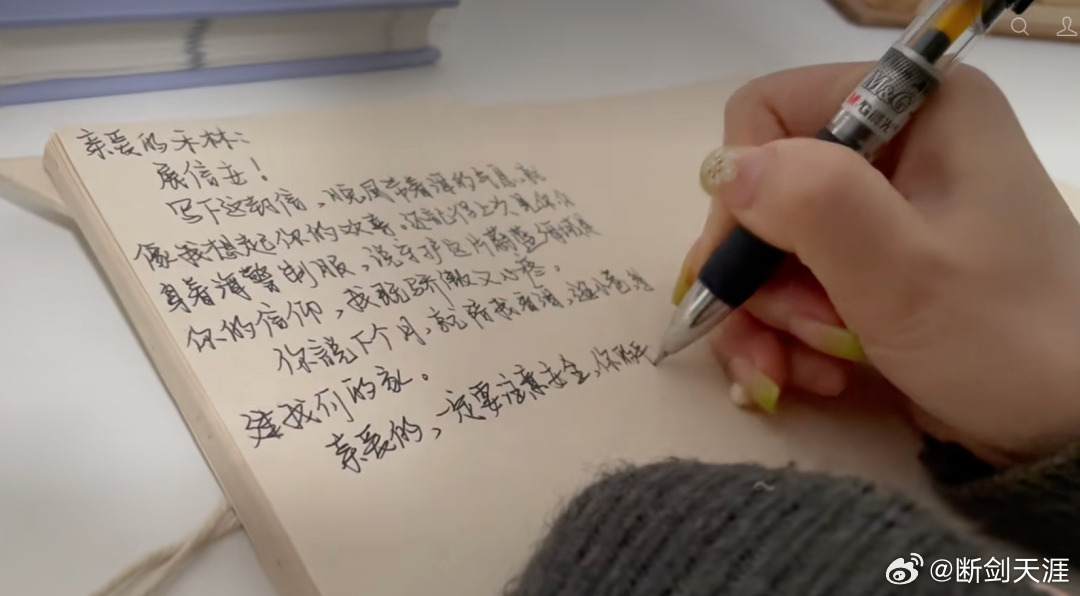 亲爱的禾林：
展信安！
写下这封信，晚风带着海的气息，就
像我想起你的故事。还记得上次见你你
身着海警制服，说守护这片蔚蓝海域是
你的信仰，我既骄傲又心疼。
你說下个月，就陪我看海，选小岛
建我们的家。
亲爱的，一定要注意安全，你
M&G
M&G晨光
@断剑天涯